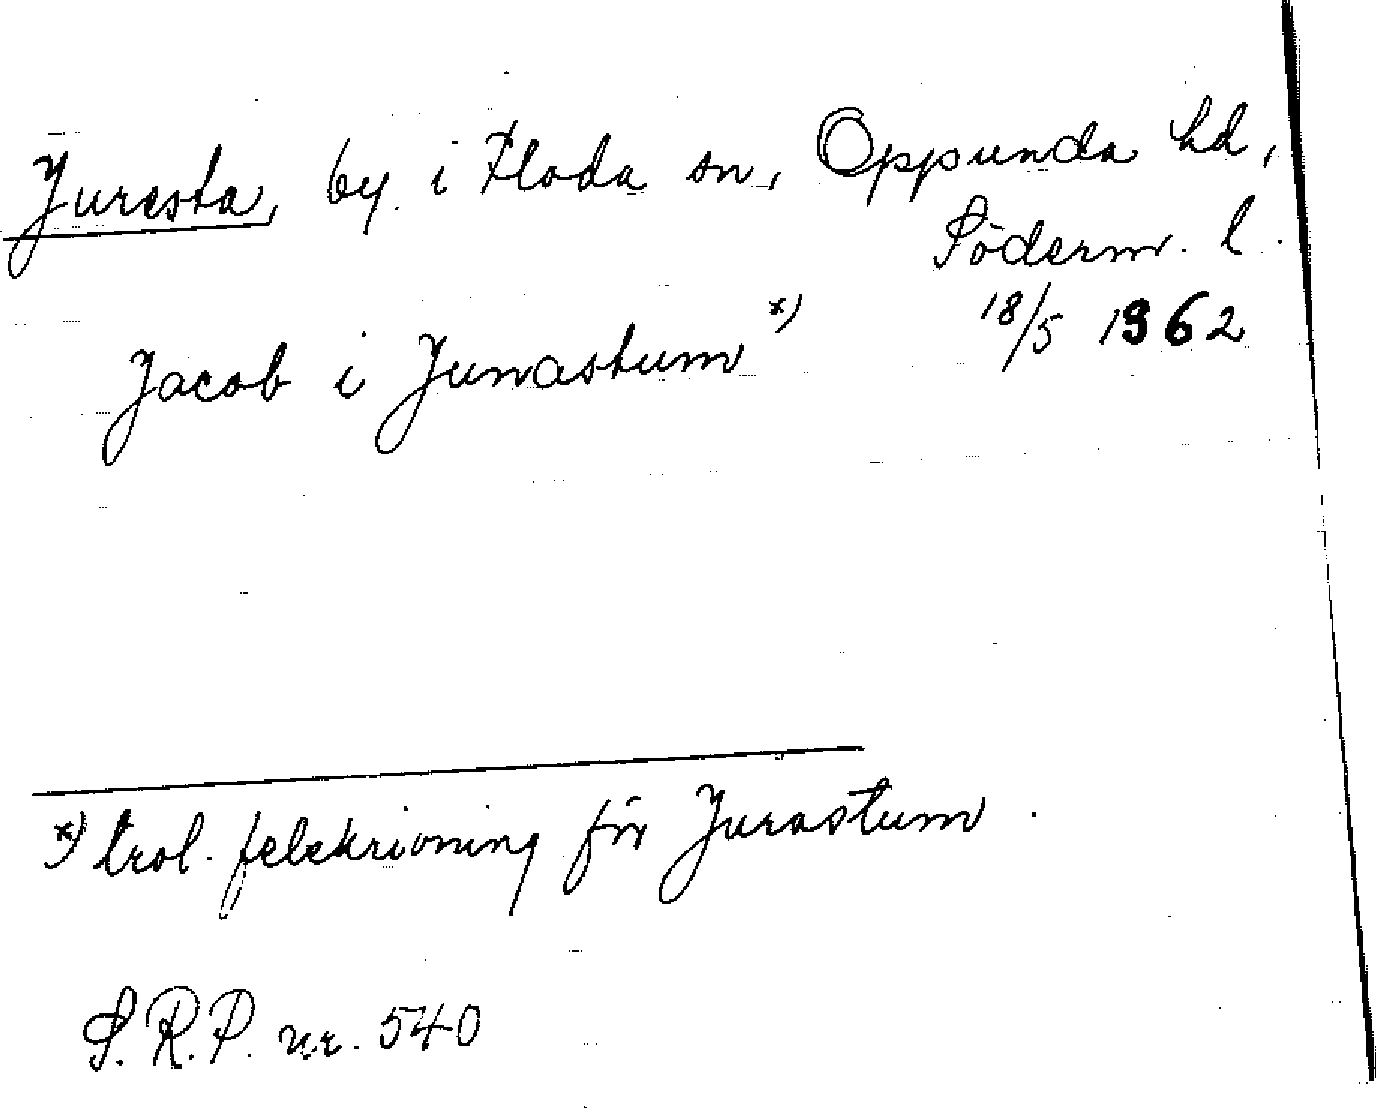 Juresta, by i Floda sn, Oppunda hd,
Söderm. l.
Jacob i Junastum *) 18/5 1362
*) trol. felskrivning för Jurastum.
S.R.P. nr. 540